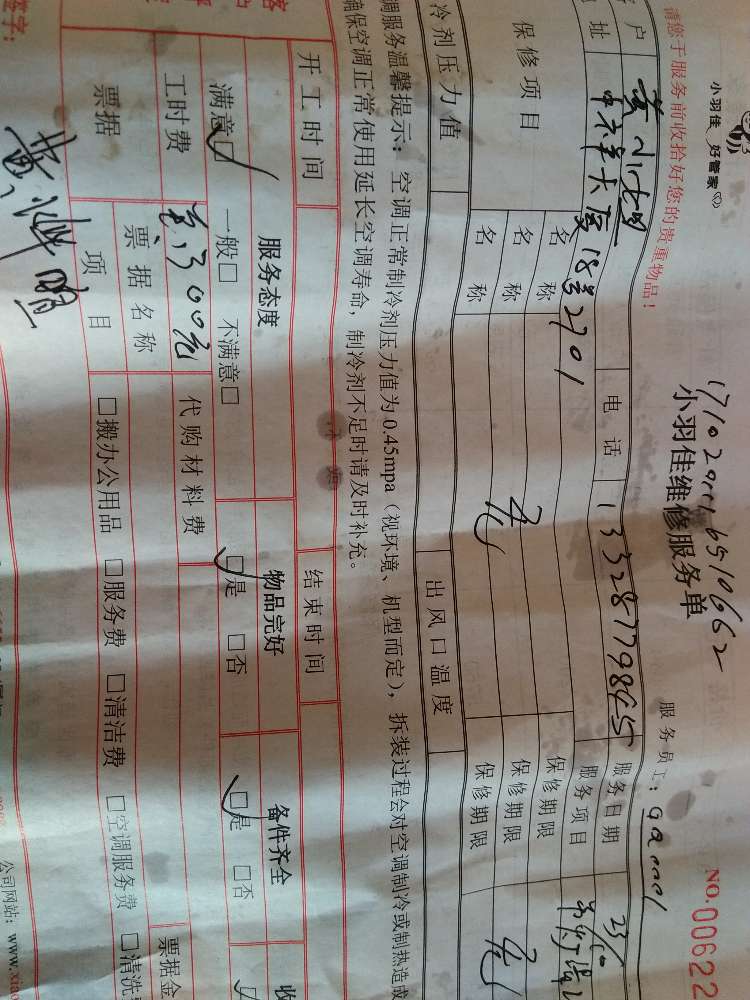 小羽佳 好管家
17102911 6510662
小羽佳维修服务单
NO.00622
请您于服务前收拾好您的贵重物品！
服务员工：
户
电话 13328779845
服务日期 23/10
址 18号2701
服务项目
保修项目
名称
保修期限
名称 无
保修期限 无
名称
保修期限
冷剂压力值
出风口温度
调服务温馨提示：空调正常制冷剂压力值为0.45mpa（视环境、机型而定），拆装过程会对空调制冷或制热造成
确保空调正常使用延长空调寿命，制冷剂不足时请及时补充。
开工时间
结束时间
服务态度
物品完好
备件齐全
收
满意□ 一般□ 不满意□
□是 □否
□是 □否
工时费 300元
代购材料费
票据
票据名称
票据金
项目
□搬办公用品 □服务费 □清洁费 □空调服务费 □清洗
签字：
公司网站：www.xiao